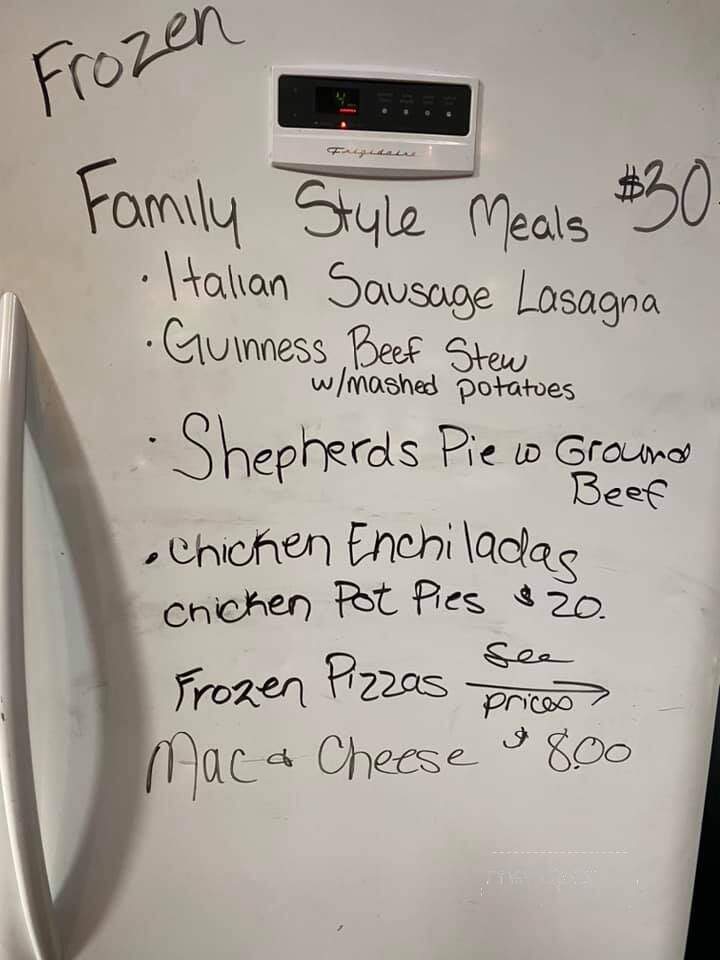 Frozen
Frigidaire
Family Style Meals $30
· Italian Sausage Lasagna
· Guinness Beef Stew
w/mashed potatoes
· Shepherds Pie w Ground
Beef
· Chicken Enchiladas
Chicken Pot Pies $20.
See
Frozen Pizzas
prices
Mac & Cheese $8.00